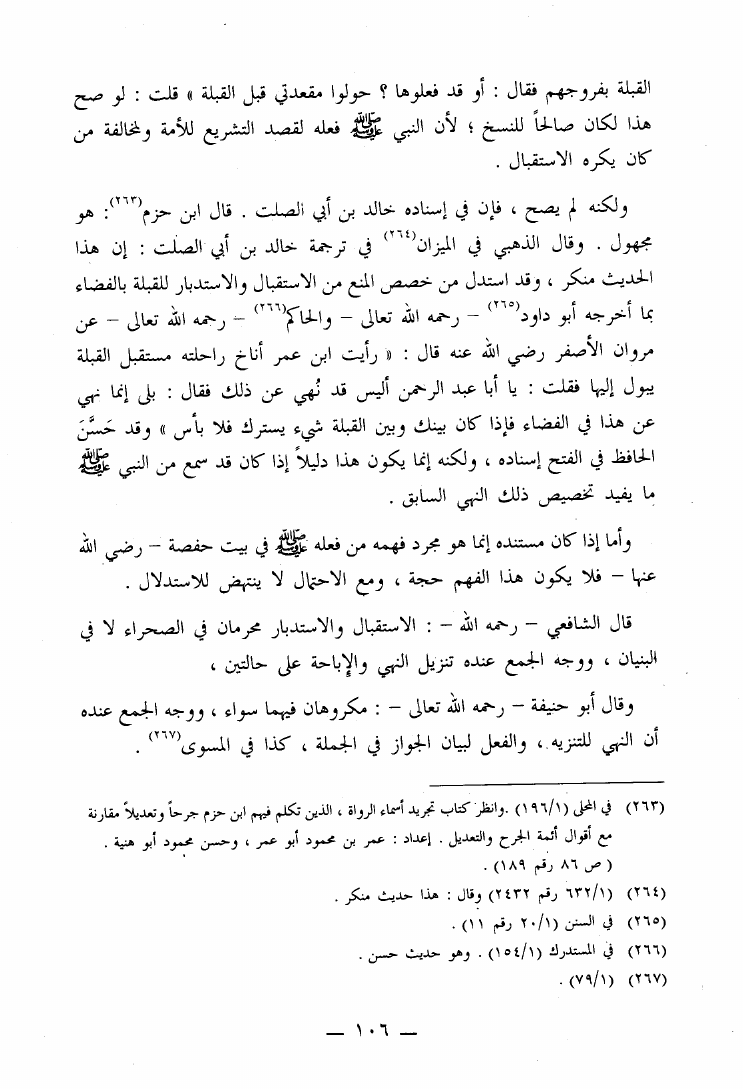 القبلة بفروجهم فقال : أو قد فعلوها ؟ حولوا مقعدتي قبل القبلة » قلت : لو صح
هذا لكان صالحاً للنسخ ؛ لأن النبي ﷺ فعله لقصد التشريع للأمة ولمخالفة من
كان يكره الاستقبال .
ولكنه لم يصح ، فإن في إسناده خالد بن أبي الصلت . قال ابن حزم(٢٦٣): هو
مجهول . وقال الذهبي في الميزان(٢٦٤) في ترجمة خالد بن أبي الصلت : إن هذا
الحديث منكر ، وقد استدل من خصص المنع من الاستقبال والاستدبار للقبلة بالفضاء
بما أخرجه أبو داود(٢٦٥) – رحمه الله تعالى – والحاكم(٢٦٦) – رحمه الله تعالى – عن
مروان الأصفر رضي الله عنه قال : « رأيت ابن عمر أناخ راحلته مستقبل القبلة
يبول إليها فقلت : يا أبا عبد الرحمن أليس قد نُهي عن ذلك فقال : بلى إنما نهي
عن هذا في الفضاء فإذا كان بينك وبين القبلة شيء يسترك فلا بأس » وقد حَسَّنَ
الحافظ في الفتح إسناده ، ولكنه إنما يكون هذا دليلاً إذا كان قد سمع من النبي ﷺ
ما يفيد تخصيص ذلك النهي السابق .
وأما إذا كان مستنده إنما هو مجرد فهمه من فعله ﷺ في بيت حفصة – رضي الله
عنها – فلا يكون هذا الفهم حجة ، ومع الاحتمال لا ينتهض للاستدلال .
قال الشافعي – رحمه الله – : الاستقبال والاستدبار محرمان في الصحراء لا في
البنيان ، ووجه الجمع عنده تنزيل النهي والإباحة على حالتين ،
وقال أبو حنيفة – رحمه الله تعالى – : مكروهان فيهما سواء ، ووجه الجمع عنده
أن النهي للتنزيه ، والفعل لبيان الجواز في الجملة ، كذا في المسوى(٢٦٧) .
(٢٦٣) في المحلى (١٩٦/١) .وانظر كتاب تجريد أسماء الرواة ، الذين تكلم فيهم ابن حزم جرحاً وتعديلاً مقارنة
مع أقوال أئمة الجرح والتعديل . إعداد : عمر بن محمود أبو عمر ، وحسن محمود أبو هنية .
( ص ٨٦ رقم ١٨٩) .
(٢٦٤) (٦٣٢/١ رقم ٢٤٣٢) وقال : هذا حديث منكر .
(٢٦٥) في السنن (٢٠/١ رقم ١١) .
(٢٦٦) في المستدرك (١٥٤/١) . وهو حديث حسن .
(٢٦٧) (٧٩/١) .
— ١٠٦ —